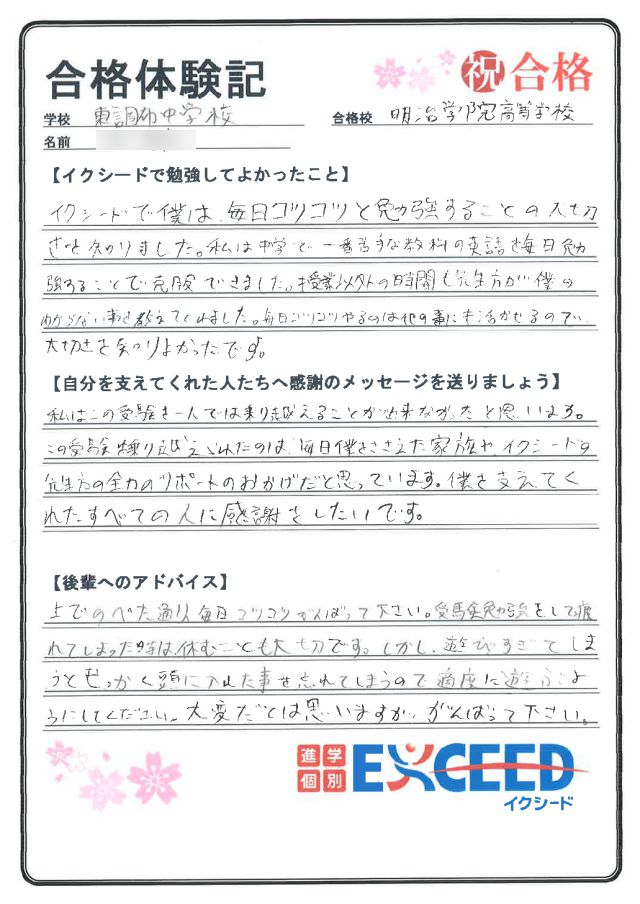 合格体験記
祝 合格
学校 東調布中学校
合格校 明治学院高等学校
名前
【イクシードで勉強してよかったこと】
イクシードで僕は、毎日コツコツと勉強することの大切
さを知りました。私は中学で一番苦手な教科の英語を毎日勉
強することで克服できました。授業以外の時間も先生方が僕の
わからない事を教えてくれました。毎日コツコツやるのは他の事にも活かせるので、
大切さを知りよかったです。
【自分を支えてくれた人たちへ感謝のメッセージを送りましょう】
私はこの受験を一人では乗り越えることが出来なかったと思います。
この受験を乗り越えられたのは、毎日僕をささえた家族や、イクシードの
先生方の全力のサポートのおかげだと思っています。僕を支えてく
れたすべての人に感謝をしたいです。
【後輩へのアドバイス】
上でのべた通り毎日コツコツがんばって下さい。受験勉強をして疲
れてしまった時は、休むことも大切です。しかし、遊びすぎてしま
うとせっかく頭に入れた事を忘れてしまうので適度に遊ぶよ
うにしてください。大変だとは思いますが、がんばって下さい。
進学
個別
EXCEED
イクシード